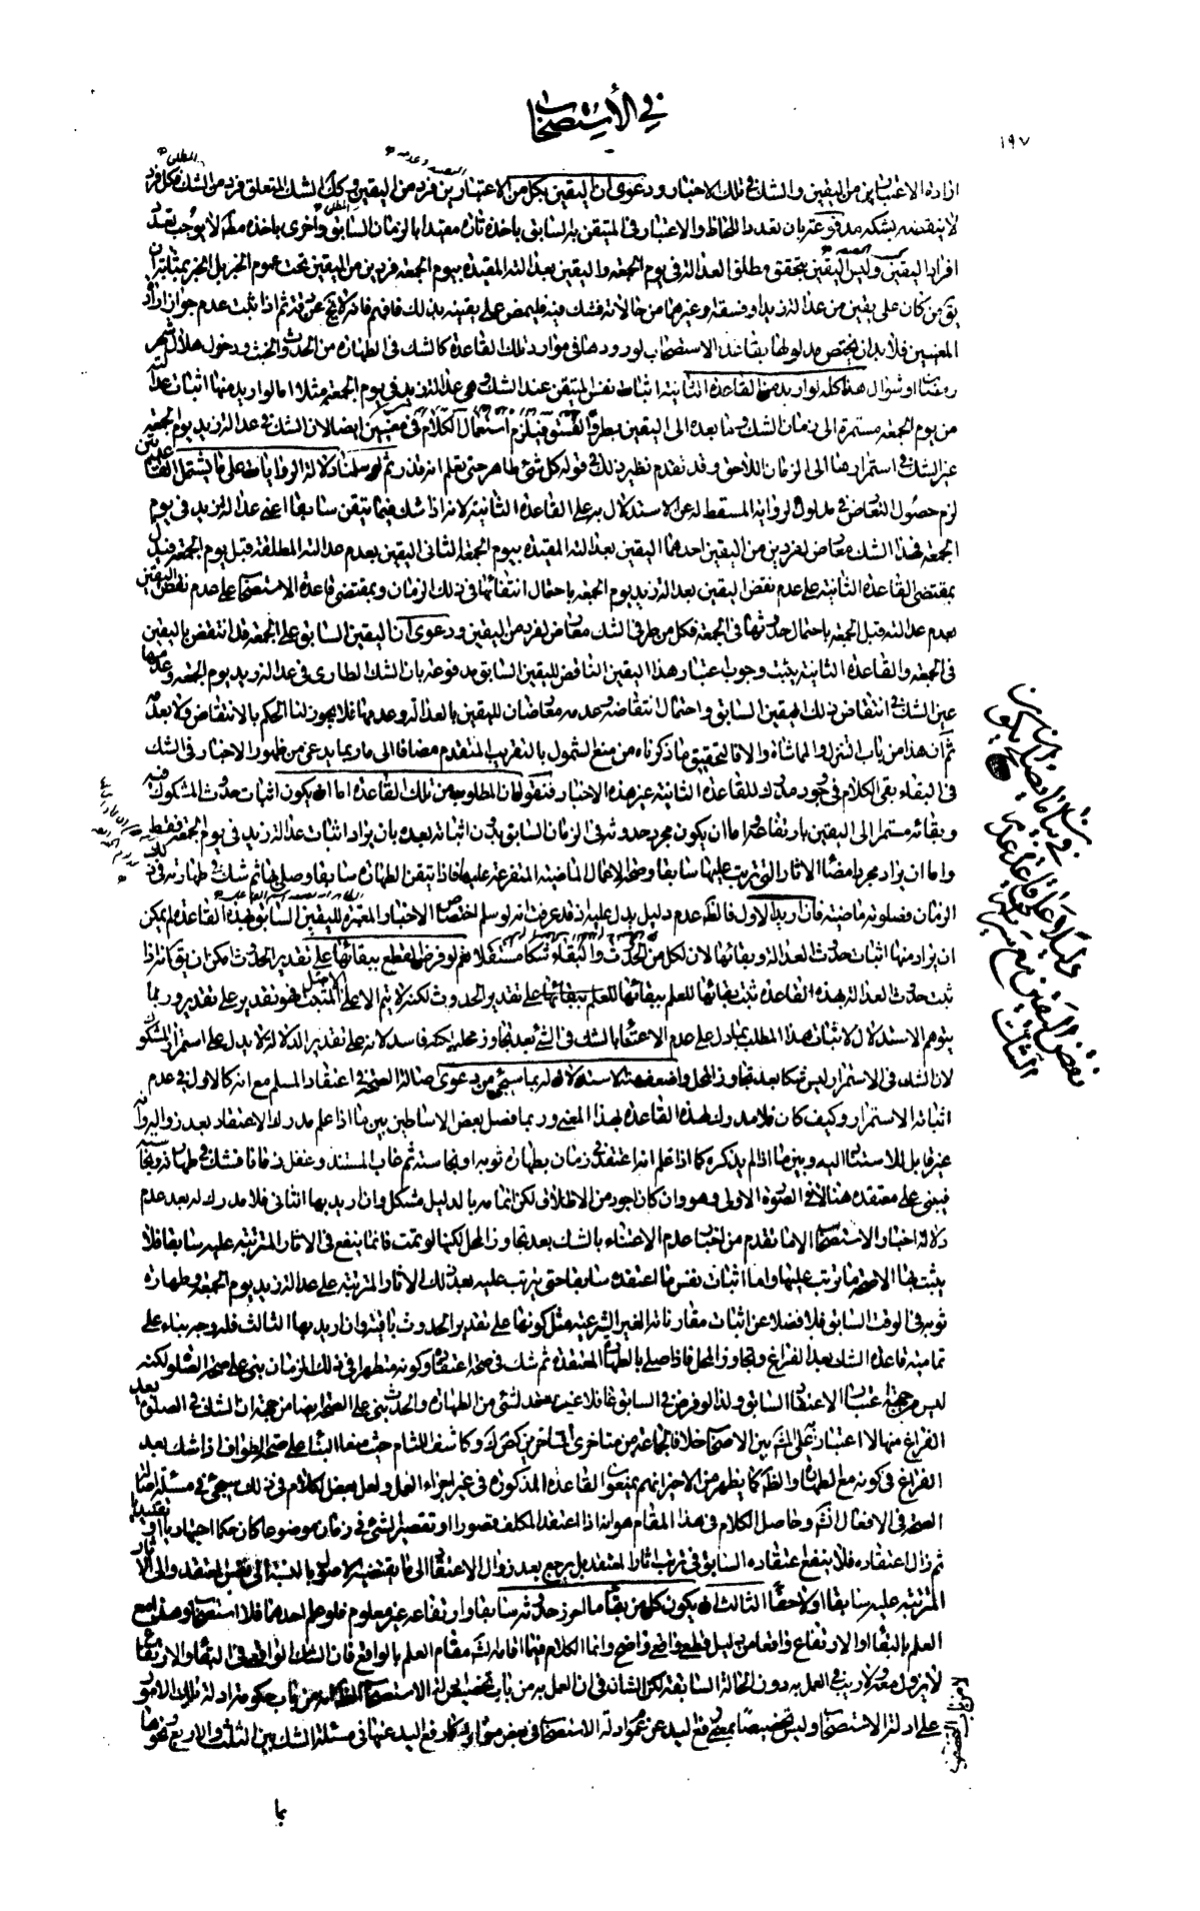 في الاستصحاب
١٩٧
ارادة الاعتبارين من اليقين والشك في تلك الاخبار ودعوى ان اليقين بكل من الاعتبارين فرد من اليقين وكذلك الشك المتعلق فرد من الشك فكل فرد
لا ينقض بشكه مدفوعة بان تعدد اللحاظ والاعتبار في المتيقن به السابق باخذه تارة مقيدا بالزمان السابق واخرى باخذه مطلقا لا يوجب تعدد
افراد اليقين وليس اليقين بتحقق مطلق العدالة في يوم الجمعة واليقين بعدالته المقيدة بيوم الجمعة فردين من اليقين تحت عموم الخبر بل الخبر بمثابة ان
يق من كان على يقين من عدالة زيد او فسقه او غيرهما من حالاته فشك فيه فليمض على يقينه بذلك فافهم فانه لا يخ عن دقة ثم اذا ثبت عدم جواز ارادة
المعنيين فلا بد ان يختص مدلولها بقاعدة الاستصحاب لورودها في موارد تلك القاعدة كالشك في الطهارة من الحدث والخبث ودخول هلال شهر
رمضان او شوال هذا كله لو اريد من القاعدة الثانية اثبات نفس المتيقن عند الشك وهي عدالة زيد في يوم الجمعة مثلا اما لو اريد منها اثبات عدالته
من يوم الجمعة مستمرة الى زمان الشك وما بعده الى اليقين بطرو الفسق فيلزم استعمال الكلام في معنيين ايضا لان الشك في عدالة زيد يوم الجمعة
غير الشك في استمرارها الى الزمان اللاحق وقد تقدم نظير ذلك في قوله كل شئ طاهر حتى تعلم انه قذر ثم لو سلمنا دلالة الروايات على ما يشتمل القاعدتين
لزم حصول التعارض في مدلول الرواية المسقط له عن الاستدلال به على القاعدة الثانية لانه اذا شك فيما تيقن سابقا اعني عدالة زيد في يوم
الجمعة فهذا الشك معارض لفردين من اليقين احدهما اليقين بعدالته المقيدة بيوم الجمعة الثاني اليقين بعدم عدالته المطلقة قبل يوم الجمعة فيدل
بمقتضى القاعدة الثانية على عدم نقض اليقين بعدالة زيد يوم الجمعة باحتمال انتفائها في ذلك الزمان وبمقتضى قاعدة الاستصحاب على عدم نقض اليقين
بعدم عدالته قبل الجمعة باحتمال حدوثها في الجمعة فكل من طرفي الشك معارض لفرد من اليقين ودعوى ان اليقين السابق على الجمعة قد انتقض باليقين
في الجمعة والقاعدة الثانية يثبت وجوب اعتبار هذا اليقين الناقض لليقين السابق مدفوعة بان الشك الطارئ في عدالة زيد يوم الجمعة وعدمها
عين الشك في انتقاض ذلك اليقين السابق واحتمال انتقاضه وعدمه معارضان لليقين بالعدالة وعدمها فلا يجوز لنا الحكم بالانتقاض ولا بعدمه
ثم ان هذا من باب التنزل والمماشاة والا فالتحقيق ما ذكرناه من منع الشمول بالتقريب المتقدم مضافا الى ما ربما يدعى من ظهور الاخبار في الشك
في البقاء بقي الكلام في وجود مدرك للقاعدة الثانية غير هذه الاخبار فنقول ان المطلوب من تلك القاعدة اما ان يكون اثبات حدوث المشكوك فيه
وبقائه مستمرا الى اليقين بارتفاعه واما ان يكون مجرد حدوثه في الزمان السابق بدون اثباته بعده بان يراد اثبات عدالة زيد في يوم الجمعة فقط
واما ان يراد مجرد امضاء الاثار التي ترتبت عليها سابقا وصحة الاعمال الماضية المتفرعة عليه فاذا تيقن الطهارة سابقا وصلى بها ثم شك في طهارته في ذلك
الزمان فصلوته ماضية فان اريد الاول فالظ عدم دليل يدل عليه اذ قد عرفت انه لو سلم اختصاص الاخبار المعتبرة لليقين السابق بهذه القاعدة لم يمكن
ان يراد منها اثبات حدوث العدالة وبقائها لان لكل من الحدوث والبقاء شكا مستقلا نعم لو فرض القطع ببقائها على تقدير الحدوث امكن ان يق كانه اذا
ثبت حدوث العدالة بهذه القاعدة ثبت بقائها للعلم ببقائها على تقدير الحدوث لكنه لا يتم الا على الاصل المثبت فهو تقدير على تقدير وربما
يتوهم الاستدلال لاثبات هذا المطلب بما دل على عدم الاعتناء بالشك في الشئ بعد تجاوز محله لكنه فاسد لانه على تقدير الدلالة لا يدل على استمرار المشكوك
لان الشك في الاستمرار ليس شكا بعد تجاوز المحل واضعف منه الاستدلال له بما سيجئ من دعوى اصالة الصحة في اعتقاد المسلم مع انه كالاول في عدم
اثباته الاستمرار وكيف كان فلا مدرك لهذه القاعدة بهذا المعنى وربما فصل بعض الاساطين بين ما اذا علم مدرك الاعتقاد بعد زواله وانه
غير قابل للاستناد اليه وبين ما اذا لم يذكره كما اذا علم انه اعتقد في زمان بطهارة ثوبه او نجاسته ثم غاب المستند وغفل زمانا فشك في طهارته ونجاسته
فيبني على معتقده هنا لا في الصورة الاولى وهو وان كان اجود من الاطلاق لكن اتمامه بالدليل مشكل وان اريد بها الثاني فلا مدرك له بعد عدم
دلالة اخبار الاستصحاب الا ما تقدم من اخبار عدم الاعتناء بالشك بعد تجاوز المحل لكنها لو تمت فانما ينفع في الاثار المترتبة عليه سابقا فلا
يثبت بها الا صحة ما ترتب عليها واما اثبات نفس ما اعتقده سابقا حتى يترتب عليه بعد ذلك الاثار المترتبة على عدالة زيد يوم الجمعة وطهارة
ثوبه في الوقت السابق فلا فضلا عن اثبات مقارناته الغير الشرعية مثل كونها على تقدير الحدوث باقية وان اريد بها الثالث فله وجه بناء على
تمامية قاعدة الشك بعد الفراغ وتجاوز المحل فاذا صلى بالطهارة المعتقدة ثم شك في صحة اعتقاده وكونه متطهرا في ذلك الزمان بنى على صحة الصلوة لكنه
ليس من جهة اعتبار الاعتقاد السابق ولذا لو فرض في السابق غافلا غير معتقد لشئ من الطهارة والحدث بنى على الصحة ايضا من جهة ان الشك في الصلوة بعد
الفراغ منها لا اعتبار به على المش بين الاصحاب خلافا لجماعة من متاخري المتاخرين كصاحب ك وكاشف اللثام حيث منعا البناء على صحة الطواف اذا شك بعد
الفراغ في كونه مع الطهارة والظ كما يظهر من الاخير انهم يمنعون القاعدة المذكورة في غير اجزاء العمل ولعل بعض الكلام في ذلك سيجئ في مسئلة اصالة
الصحة في الافعال انش وحاصل الكلام في هذا المقام هو انه اذا اعتقد المكلف قصورا او تقصيرا بشئ في زمان موضوعا كان او حكما اجتهاديا او تقليديا
ثم زال اعتقاده فلا ينفع اعتقاده السابق في ترتب اثار المعتقد بل يرجع بعد زوال الاعتقاد الى ما يقتضيه الاصول بالنسبة الى نفس المعتقد والى الاثار
المترتبة عليه سابقا او لاحقا الثالث ان يكون كل من بقاء ما احرز حدوثه سابقا وارتفاعه غير معلوم فلو علم احدهما فلا استصحاب وهذا مع
العلم بالبقاء او الارتفاع واقعا من دليل قطعي واقعي واضح وانما الكلام فيما اقامه الش مقام العلم بالواقع فان الشك الواقعي في البقاء والارتفاع
لا يزول معه ولا ريب في العمل به دون الحالة السابقة لكن الشان في ان العمل به من باب تخصيص ادلة الاستصحاب او من باب التخصص الظ انه من باب حكومة ادلة تلك الامور
على ادلة الاستصحاب وليس تخصيصا بمعنى رفع اليد عن عموم ادلة الاستصحاب في بعض موارده كما رفع اليد عنها في مسئلة الشك بين الثلث والاربع ونحوها
بما